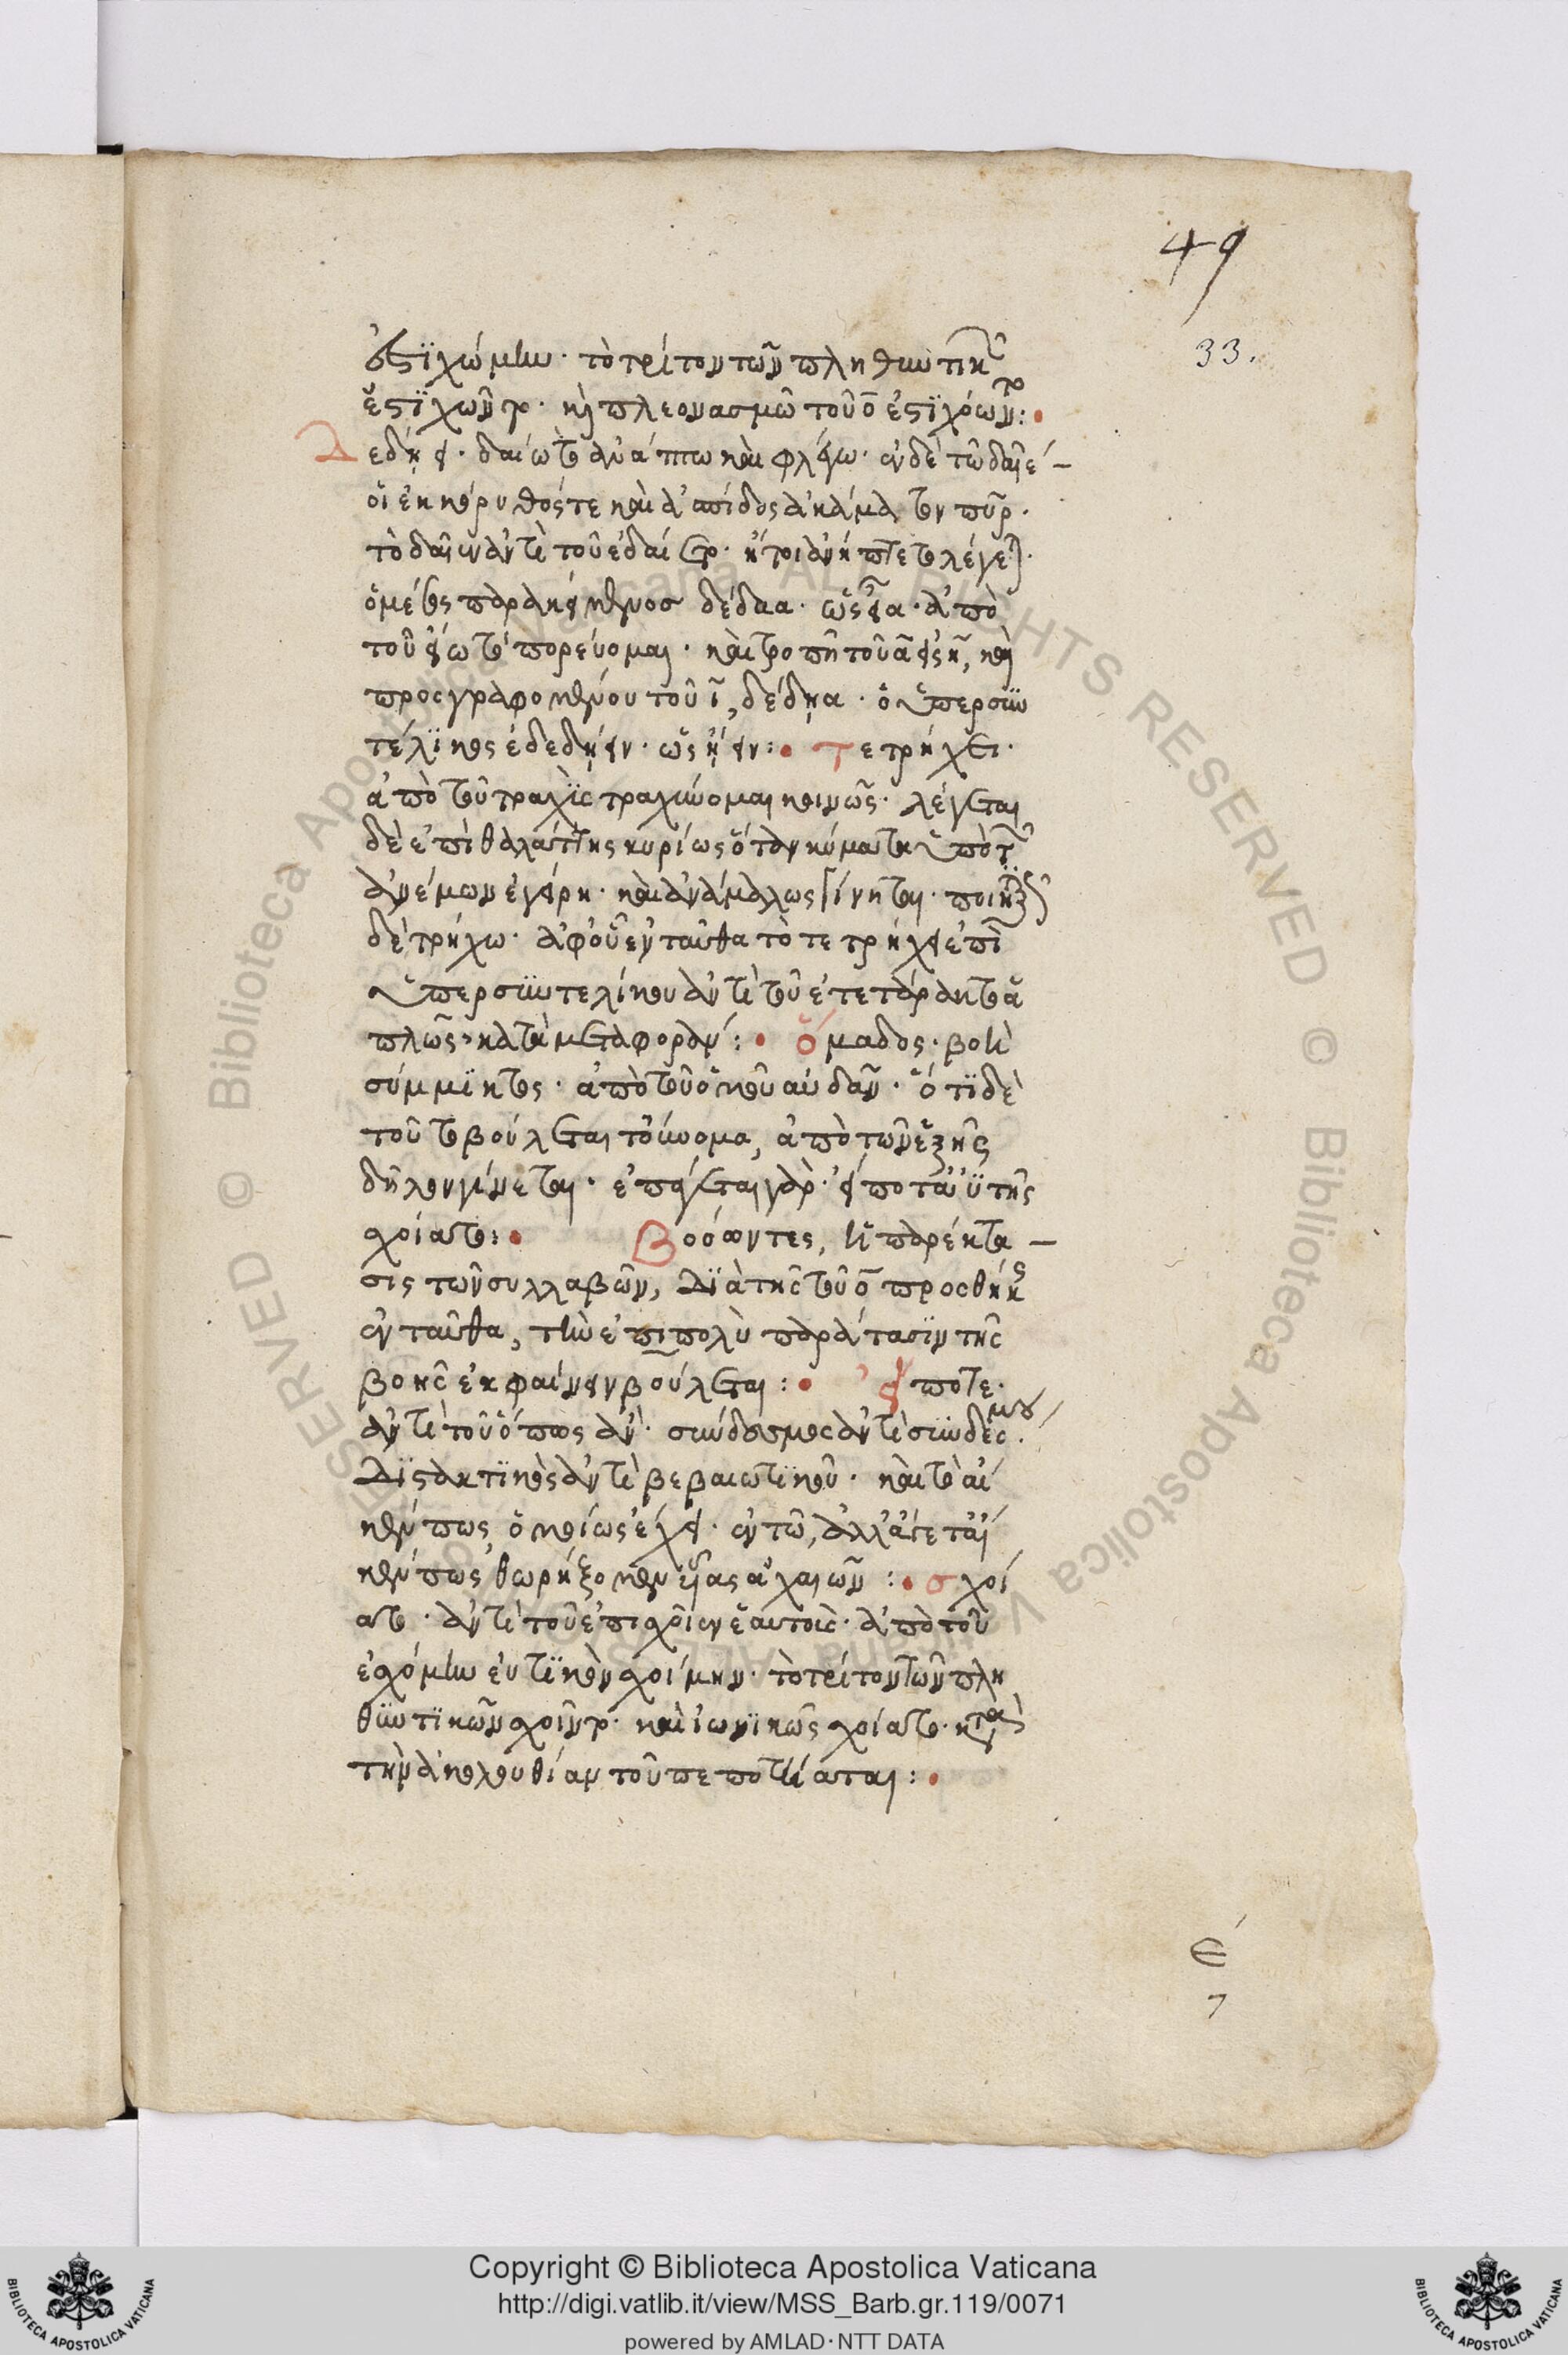 49
33.
ἐστιχώμην· τὸ τρίτον τῶν πληθυντικῶν
ἐστιχῶντο· καὶ πλεονασμῶ τοῦ ο ἐστιχόωντο:
Δεδήει· δαίω τὸ ἀνάπτω καὶ φλέγω· ἐν δὲ τῶ δαῖέ
οἱ ἐκ κόρυθός τε καὶ ἀσπίδος ἀκάματον πῦρ·
τὸ δαῖεν ἀντὶ τοῦ ἔδαιεν
ὁ μέσος παρακείμενος δέδαα· ὡς εἶα· ἀπὸ
τοῦ εἴω τὸ πορεύομαι· καὶ τροπῆ τοῦ α εἰς η, καὶ
προσγραφομένου τοῦ ι, δέδηα· ὁ ὑπερσυν
τέλικος ἐδεδήειν· ὡς ἤειν: τετρήχει·
ἀπὸ τοῦ τραχὺς τραχύνομαι κοινῶς· λέγεται
δὲ ἐπὶ θαλάττης κυρίως ὅταν κύματα ὑπὸ τῶν
ἀνέμων ἐγείρη· καὶ ἀνώμαλος γίνηται·
δὲ τρήχω· ἀφ' οὗ ἐνταῦθα τὸ τετρήχει ἐπὶ
ὑπερσυντελίκου ἀντὶ τοῦ ἐτετάρακτο ἁ
πλῶς κατὰ μεταφοράν: ὅμαδος· βοὴ
σύμμικτος· ἀπὸ τοῦ ὁμοῦ αὐδᾶν· ὅτι δὲ
τοῦτο βούλεται τοὔνομα, ἀπὸ τῶν ἑξῆς
δῆλον γίνεται· ἐπάγεται γὰρ· εἴποτ' ἀϋτῆς
σχοίατο: Βοόωντες, ἡ παρέκτα
σις τῶν συλλαβῶν, διὰ τῆς τοῦ ο προσθήκης
ἐνταῦθα, τὴν ἐπιπολὺ παράτασιν τῆς
βοῆς ἐκφαίνειν βούλεται: εἴποτε·
ἀντὶ τοῦ ὅπως ἄν· σύνδεσμος ἀντὶ συνδέσμου
διστακτικὸς ἀντὶ βεβαιωτικοῦ· καὶ τὸ αἴ
κέν πως, ὁμοίως ἔχει· ἐν τῶ, ἀλλ' ἄγετ' αἴ
κέν πως θωρήξομεν υἷας ἀχαιῶν: σχοί
ατο· ἀντὶ τοῦ ἐπισχοῖεν ἑαυτοὺς· ἀπὸ τοῦ
ἐσχόμην εὐκτικὸν σχοίμην· τὸ τρίτον τῶν πλη
θυντικῶν σχοῖντο· καὶ ἰωνικῶς σχοίατο· κατὰ
τὴν ἀκολουθίαν τοῦ πεποτήαται:
ε
7
Copyright © Biblioteca Apostolica Vaticana
http://digi.vatlib.it/view/MSS_Barb.gr.119/0071
powered by AMLAD·NTT DATA